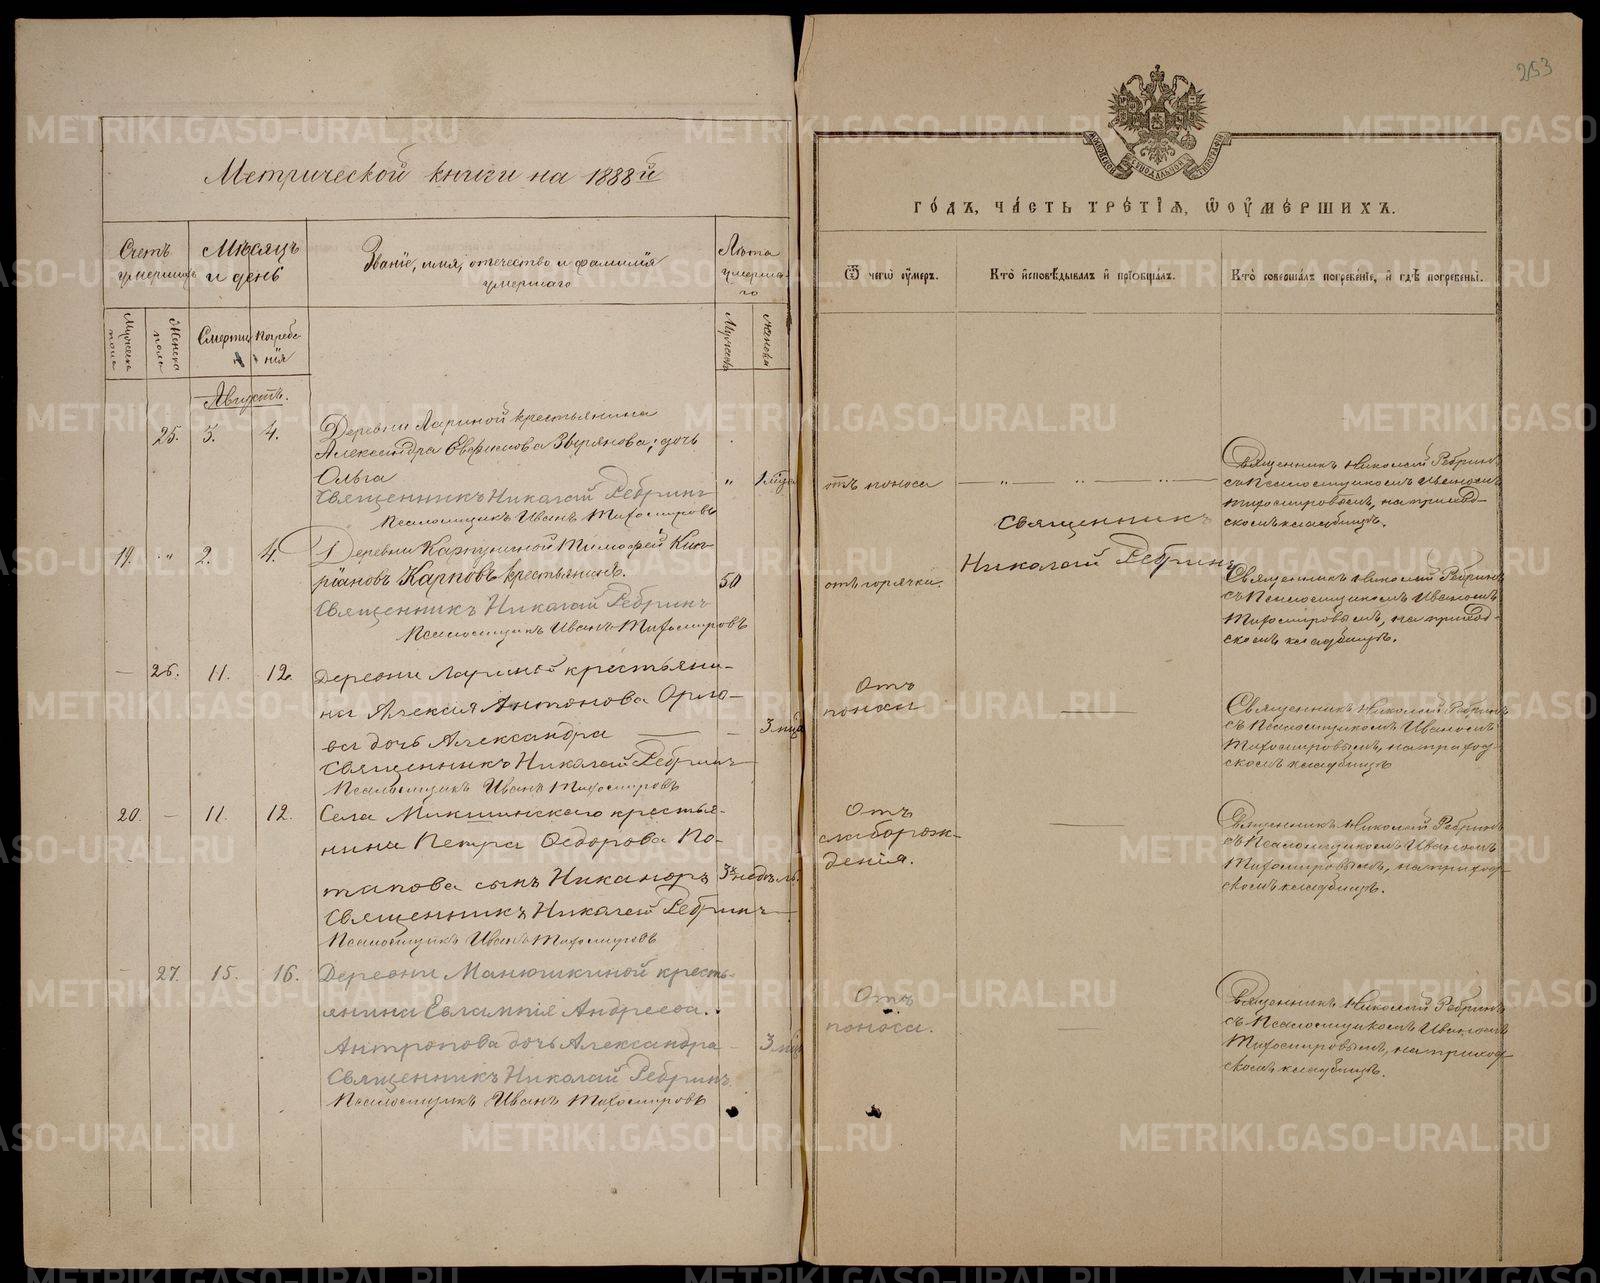 253
МОСКОВСКОЙ СѴНОДАЛЬНОЙ ТИПОГРАФІИ
Метрической книги на 1888й
ГО́ДЪ, ЧА́СТЬ ТРЕ́ТІѦ, Ѿ ОУ҆МЕ́РШИХЪ.
Счетъ умершихъ
Мѣсяцъ и день
Званіе, имя, отечество и фамилія умершаго
Лѣта умершаго
Ѿ чегѡ̀ оу҆́меръ.
Кто̀ и҆сповѣ́дывалъ и҆ прїѡбща́лъ.
Кто̀ соверша́лъ погребе́нїе, и҆ гдѣ̀ погребены̀.
Мужеска пола
Женска пола
Смерти
Погребенія
Мужеска
Женска
Августъ.
25. 3. 4.
Деревни Лариной крестьянина
Александра Евфимова Зырянова, дочь
Ольга " 1 мѣся
Священникъ Николай Ребринъ
Псаломщикъ Иванъ Тихомировъ
отъ поноса
Священникъ Николай Ребринъ
съ Псаломщикомъ Иваномъ
Тихомировымъ, на приход-
скомъ кладбищѣ.
19. " 2. 4.
Деревни Карпуниной Тимофей Кип-
ріановъ Карповъ крестьянинъ. 50
Священникъ Николай Ребринъ
Псаломщикъ Иванъ Тихомировъ
отъ горячки.
Священникъ
Николай Ребринъ
Священникъ Николай Ребринъ
съ Псаломщикомъ Иваномъ
Тихомировымъ, на приход-
скомъ кладбищѣ.
— 26. 11. 12.
Деревни Лариной крестьяни-
на Алексія Антонова Орло-
ва дочь Александра — 3 мѣся
Священникъ Николай Ребринъ
Псаломщикъ Иванъ Тихомировъ
Отъ
поноса
—
Священникъ Николай Ребринъ
съ Псаломщикомъ Иваномъ
Тихомировымъ, на приход-
скомъ кладбищѣ
20. — 11. 12.
Села Микшинскаго крестья-
нина Петра Ѳедорова По-
тапова сынъ Никаноръ 3хъ недѣль
Священникъ Николай Ребринъ
Псаломщикъ Иванъ Тихомировъ
Отъ
слаборож-
денія.
—
Священникъ Николай Ребринъ
съ Псаломщикомъ Иваномъ
Тихомировымъ, на приход-
скомъ кладбищѣ.
— 27. 15. 16.
Деревни Манюшкиной кресть-
янина Евлампія Андреева
Антропова дочь Александра — 3 мѣся
Священникъ Николай Ребринъ
Псаломщикъ Иванъ Тихомировъ
Отъ
поноса.
—
Священникъ Николай Ребринъ
съ Псаломщикомъ Иваномъ
Тихомировымъ, на приход-
скомъ кладбищѣ.
METRIKI.GASO-URAL.RU